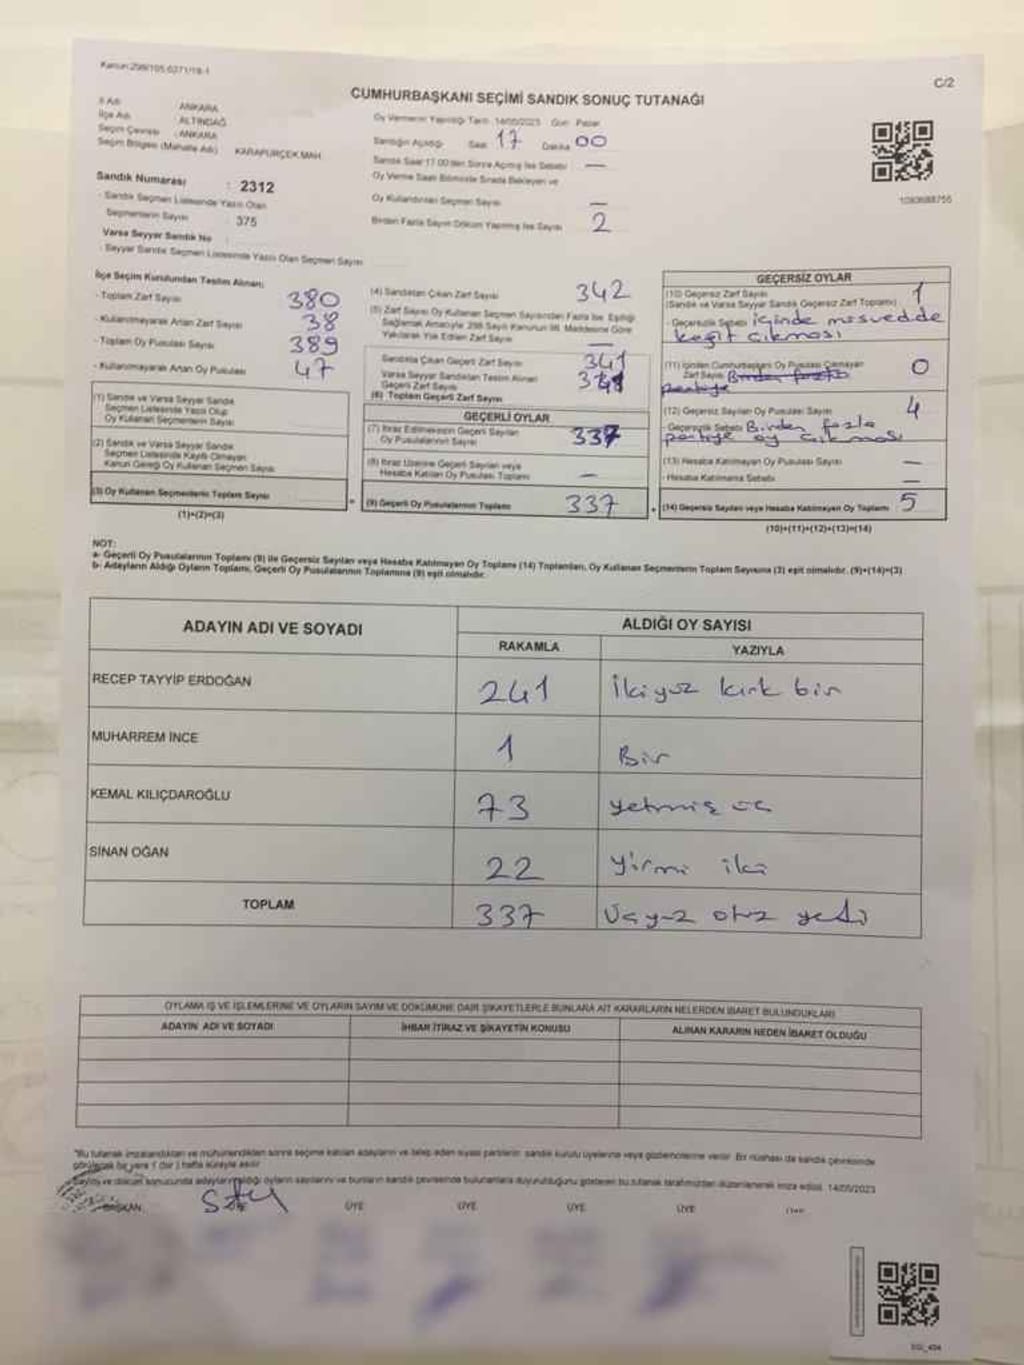 Kanun:298/105,6271/19-1
C/2
CUMHURBAŞKANI SEÇİMİ SANDIK SONUÇ TUTANAĞI
İl Adı : ANKARA
İlçe Adı : ALTINDAĞ
Seçim Çevresi : ANKARA
Seçim Bölgesi (Mahalle Adı) : KARAPÜRÇEK MAH.
Sandık Numarası : 2312
- Sandık Seçmen Listesinde Yazılı Olan
Seçmenlerin Sayısı : 375
Varsa Seyyar Sandık No :
- Seyyar Sandık Seçmen Listesinde Yazılı Olan Seçmen Sayısı
Oy Vermenin Yapıldığı Tarih : 14/05/2023 Gün : Pazar
Sandığın Açıldığı Saat 17 Dakika 00
Sandık Saat 17.00'den Sonra Açılmış İse Sebebi : —
Oy Verme Saati Bitiminde Sırada Bekleyen ve
Oy Kullandırılan Seçmen Sayısı : —
Birden Fazla Sayım Döküm Yapılmış İse Sayısı : 2
1093688755
İlçe Seçim Kurulundan Teslim Alınan;
- Toplam Zarf Sayısı 380
- Kullanılmayarak Artan Zarf Sayısı 38
- Toplam Oy Pusulası Sayısı 389
- Kullanılmayarak Artan Oy Pusulası 47
(1) Sandık ve Varsa Seyyar Sandık
Seçmen Listesinde Yazılı Olup
Oy Kullanan Seçmenlerin Sayısı
(2) Sandık ve Varsa Seyyar Sandık
Seçmen Listesinde Kayıtlı Olmayan
Kanun Gereği Oy Kullanan Seçmen Sayısı
(3) Oy Kullanan Seçmenlerin Toplam Sayısı
(1)+(2)=(3)
(4) Sandıktan Çıkan Zarf Sayısı 342
(5) Zarf Sayısı Oy Kullanan Seçmen Sayısından Fazla İse, Eşitliği
Sağlamak Amacıyla 298 Sayılı Kanunun 98. Maddesine Göre
Yakılarak Yok Edilen Zarf Sayısı —
Sandıkta Çıkan Geçerli Zarf Sayısı 341
Varsa Seyyar Sandıktan Teslim Alınan
Geçerli Zarf Sayısı
(6) Toplam Geçerli Zarf Sayısı 341
GEÇERLİ OYLAR
(7) İtiraz Edilmeksizin Geçerli Sayılan
Oy Pusulalarının Sayısı 337
(8) İtiraz Üzerine Geçerli Sayılan veya
Hesaba Katılan Oy Pusulası Toplamı —
(9) Geçerli Oy Pusulalarının Toplamı 337
GEÇERSİZ OYLAR
(10) Geçersiz Zarf Sayısı
(Sandık ve Varsa Seyyar Sandık Geçersiz Zarf Toplamı) 1
- Geçersizlik Sebebi içinde müsvedde
keğit çıkması
(11) İçinden Cumhurbaşkanı Oy Pusulası Çıkmayan
Zarf Sayısı Birden fazla 0
partiye
(12) Geçersiz Sayılan Oy Pusulası Sayısı 4
- Geçersizlik Sebebi Birden fazla
partiye oy çıkması
(13) Hesaba Katılmayan Oy Pusulası Sayısı —
- Hesaba Katılmama Sebebi —
(14) Geçersiz Sayılan veya Hesaba Katılmayan Oy Toplamı 5
(10)+(11)+(12)+(13)=(14)
NOT:
a- Geçerli Oy Pusulalarının Toplamı (9) ile Geçersiz Sayılan veya Hesaba Katılmayan Oy Toplamı (14) Toplamları, Oy Kullanan Seçmenlerin Toplam Sayısına (3) eşit olmalıdır. (9)+(14)=(3)
b- Adayların Aldığı Oyların Toplamı, Geçerli Oy Pusulalarının Toplamına (9) eşit olmalıdır.
ADAYIN ADI VE SOYADI
ALDIĞI OY SAYISI
RAKAMLA YAZIYLA
RECEP TAYYİP ERDOĞAN 241 ikiyüz kırk bir
MUHARREM İNCE 1 Bir
KEMAL KILIÇDAROĞLU 73 yetmiş üç
SİNAN OĞAN 22 yirmi iki
TOPLAM 337 Üçyüz otuz yedi
OYLAMA İŞ VE İŞLEMLERİNE VE OYLARIN SAYIM VE DÖKÜMÜNE DAİR ŞİKAYETLERLE BUNLARA AİT KARARLARIN NELERDEN İBARET BULUNDUKLARI
ADAYIN ADI VE SOYADI İHBAR İTİRAZ VE ŞİKAYETİN KONUSU ALINAN KARARIN NEDEN İBARET OLDUĞU
"Bu tutanak imzalandıktan ve mühürlendikten sonra seçime katılan adayların ve talep eden siyasi partilerin sandık kurulu üyelerine veya gözlemcilerine verilir. Bir nüshası da sandık çevresinde
görülecek bir yere 1 (bir) hafta süreyle asılır.
Sayım ve döküm sonucunda adayların aldığı oyların sayılarını ve bunların sandık çevresinde bulunanlara duyurulduğunu gösteren bu tutanak tarafımızdan düzenlenerek imza edildi. 14/05/2023
BAŞKAN ÜYE ÜYE ÜYE ÜYE